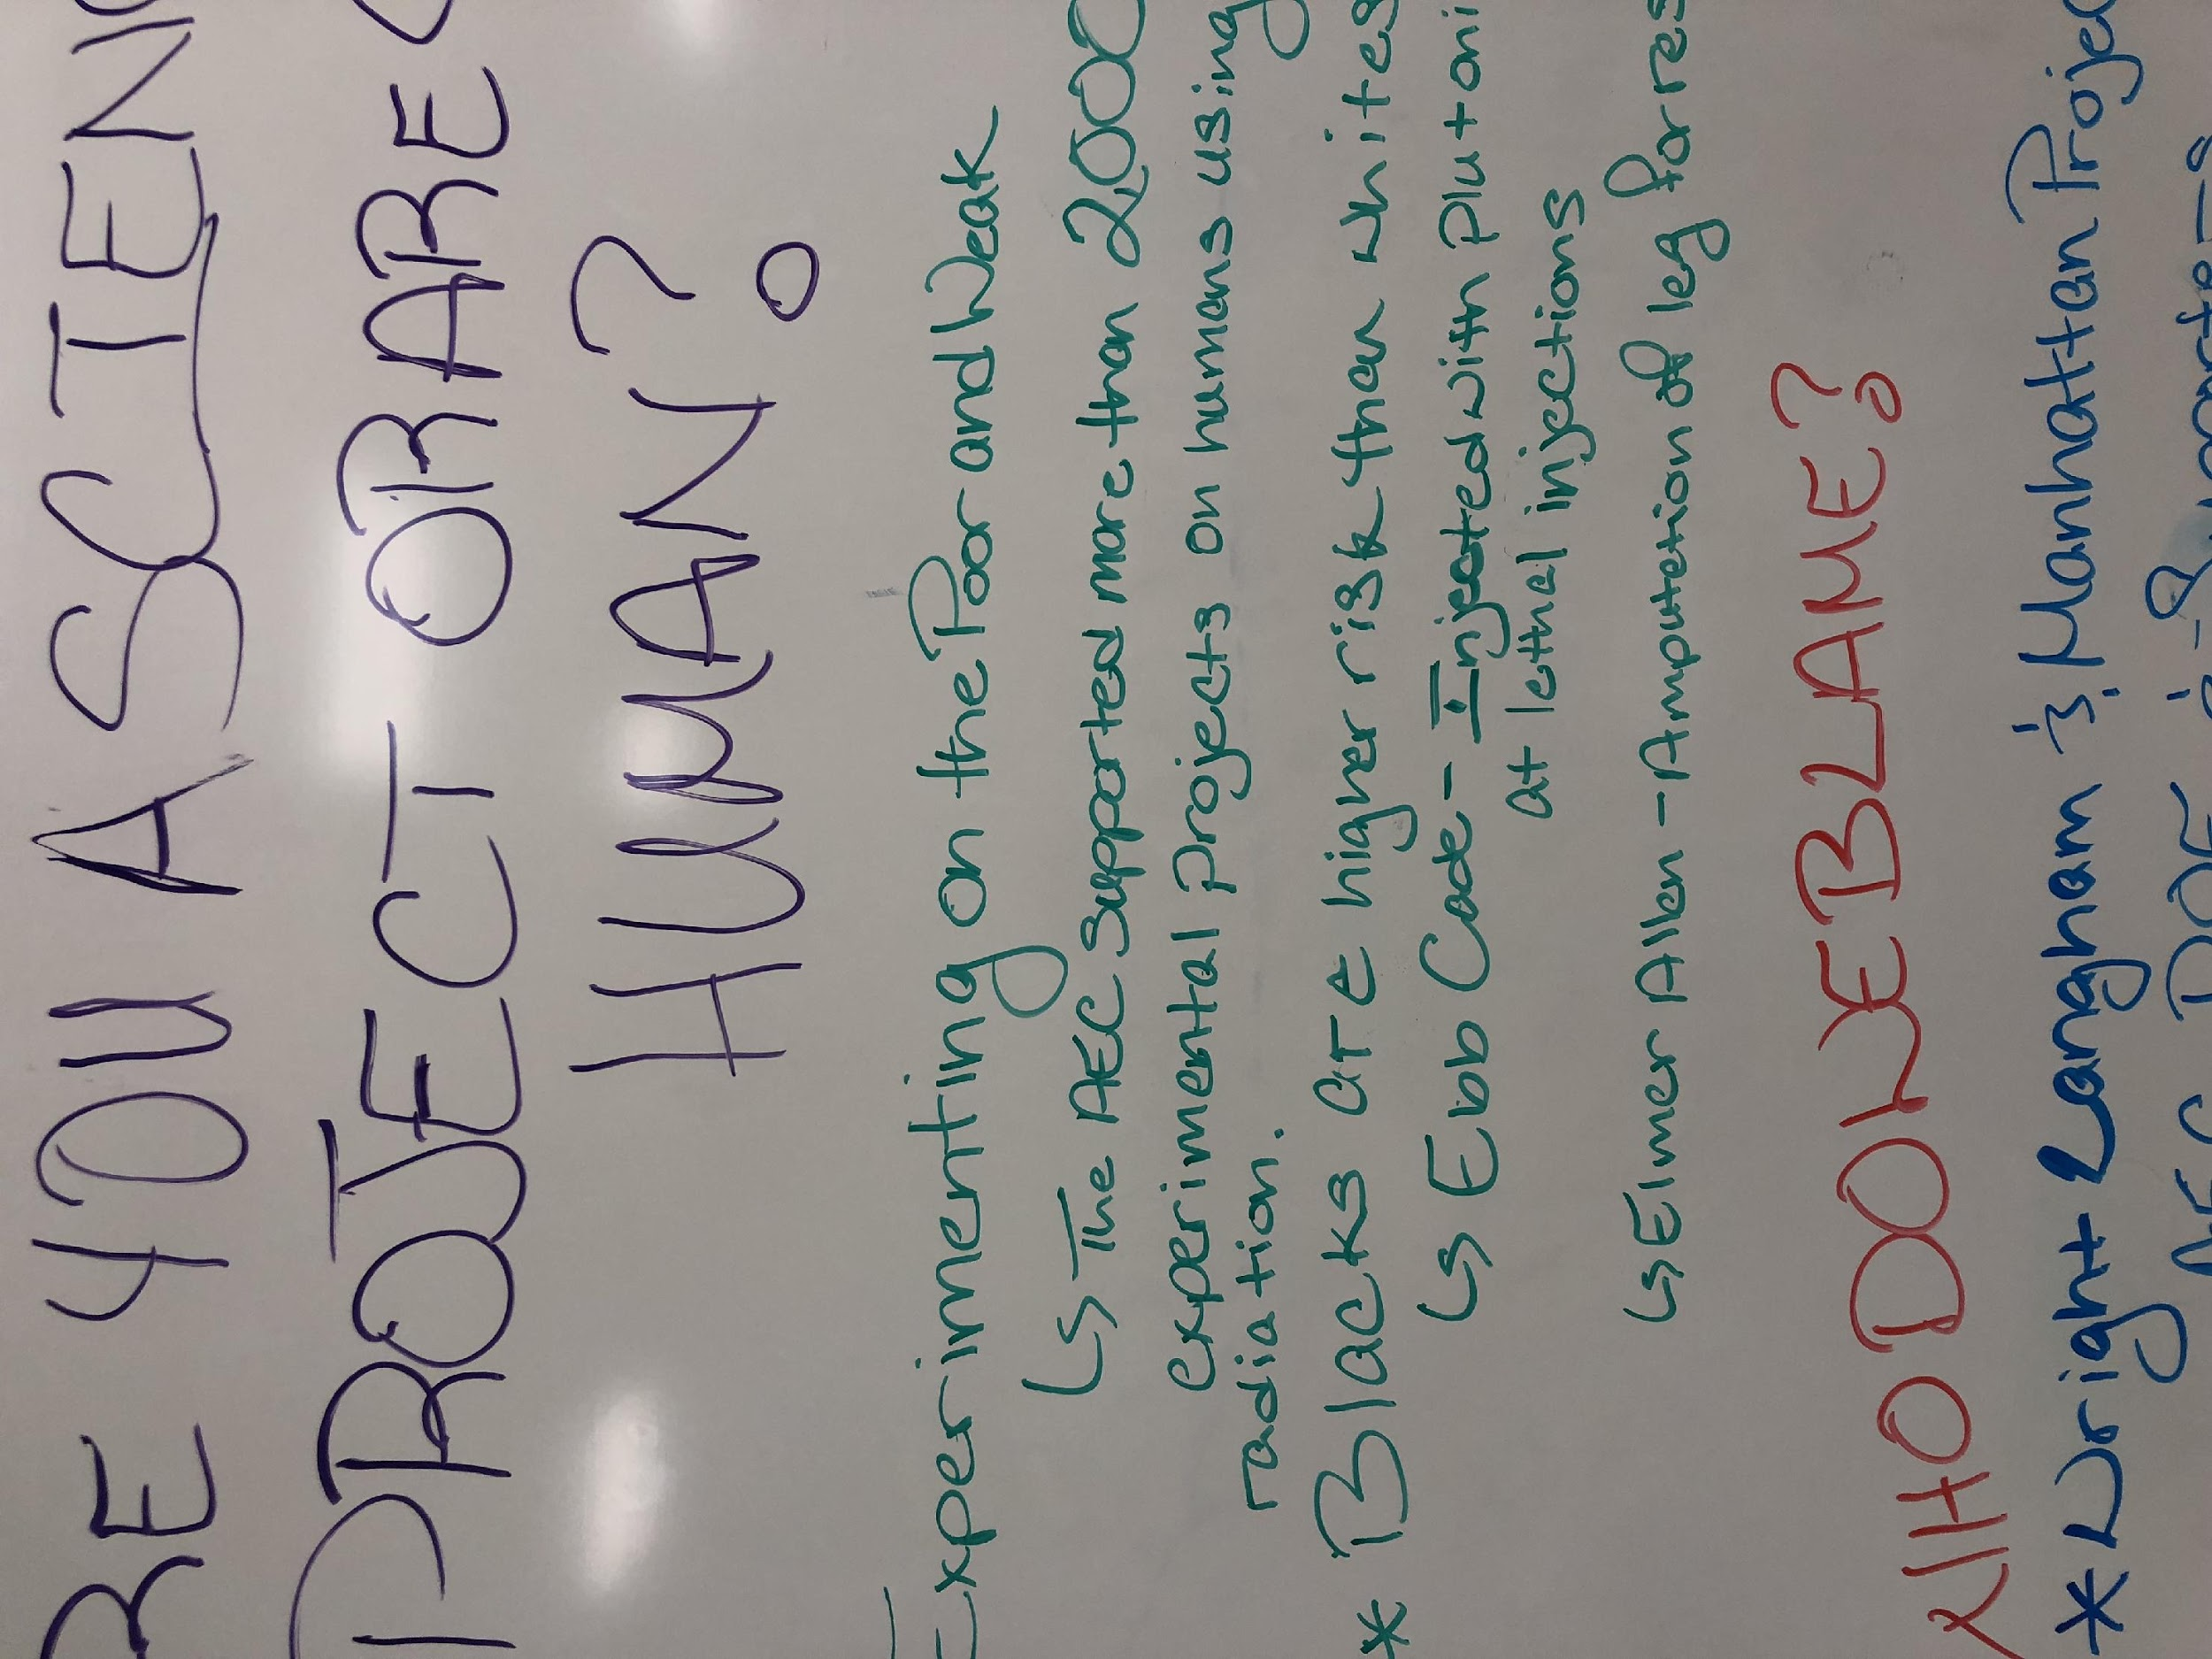 RE YOU A SCIEN
PROJECT OR ARE
HUMAN?
Experimenting on the Poor and Weak
↳ The AEC supported more than 2,000
experimental projects on humans using
radiation.
* Blacks at a higher risk than whites
↳ Ebb Cade - Injected with Plutoni
at lethal injections
↳ Elmer Allen - Amputation of leg for res
WHO DO WE BLAME?
* Wright Langham & Manhattan Projec
AEC DOE